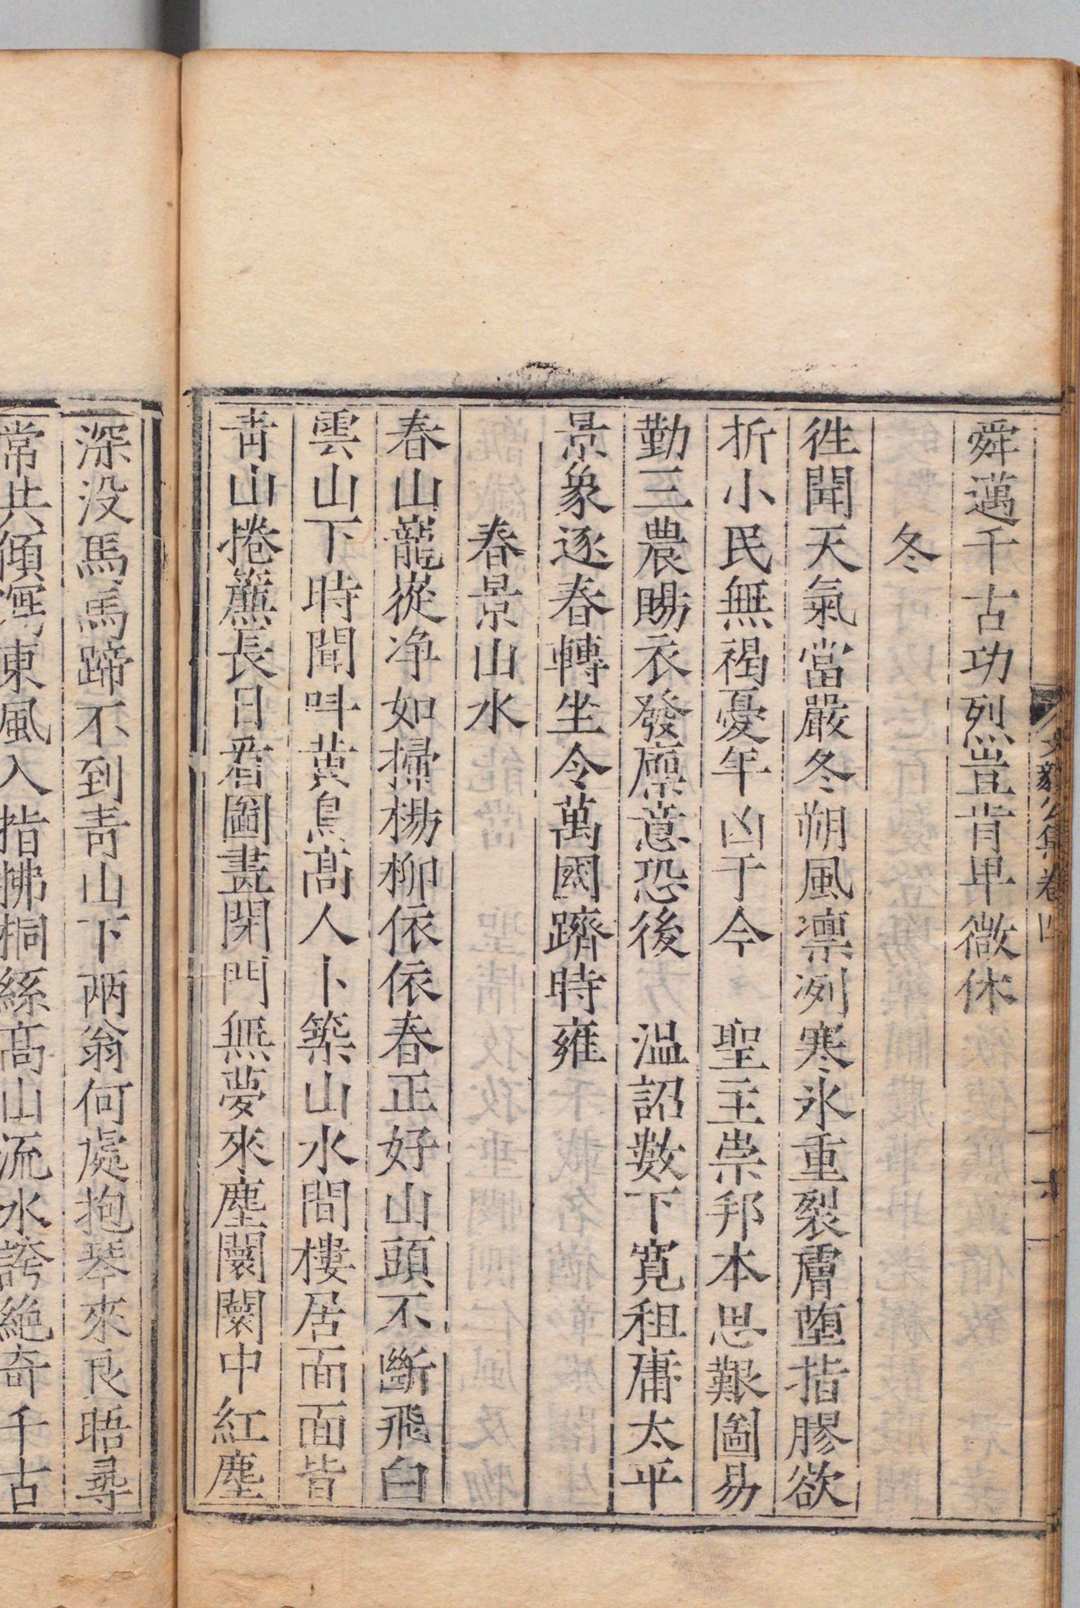 舜邁千古功烈豈肯卑微休
冬
徃聞天氣當嚴冬朔風凛冽寒氷重裂膚堕指膠欲
折小民無褐憂年凶于今　聖主崇邦本思艱圖易
勤三農賜衣發廪意恐後　温詔數下寛租庸太平
景象逐春轉坐令萬國躋時雍
春景山水
春山巃嵷净如掃楊柳依依春正好山頭不斷飛白
雲山下時聞呌黄鳥髙人卜築山水間樓居面面皆
青山捲簾長日看圖畫閉門無夢來塵闤闤中紅塵
深没馬馬蹄不到青山下兩翁何處抱琴來良晤尋
常共傾瀉東風入指拂桐絲髙山流水誇絶奇千古
文毅公集卷四